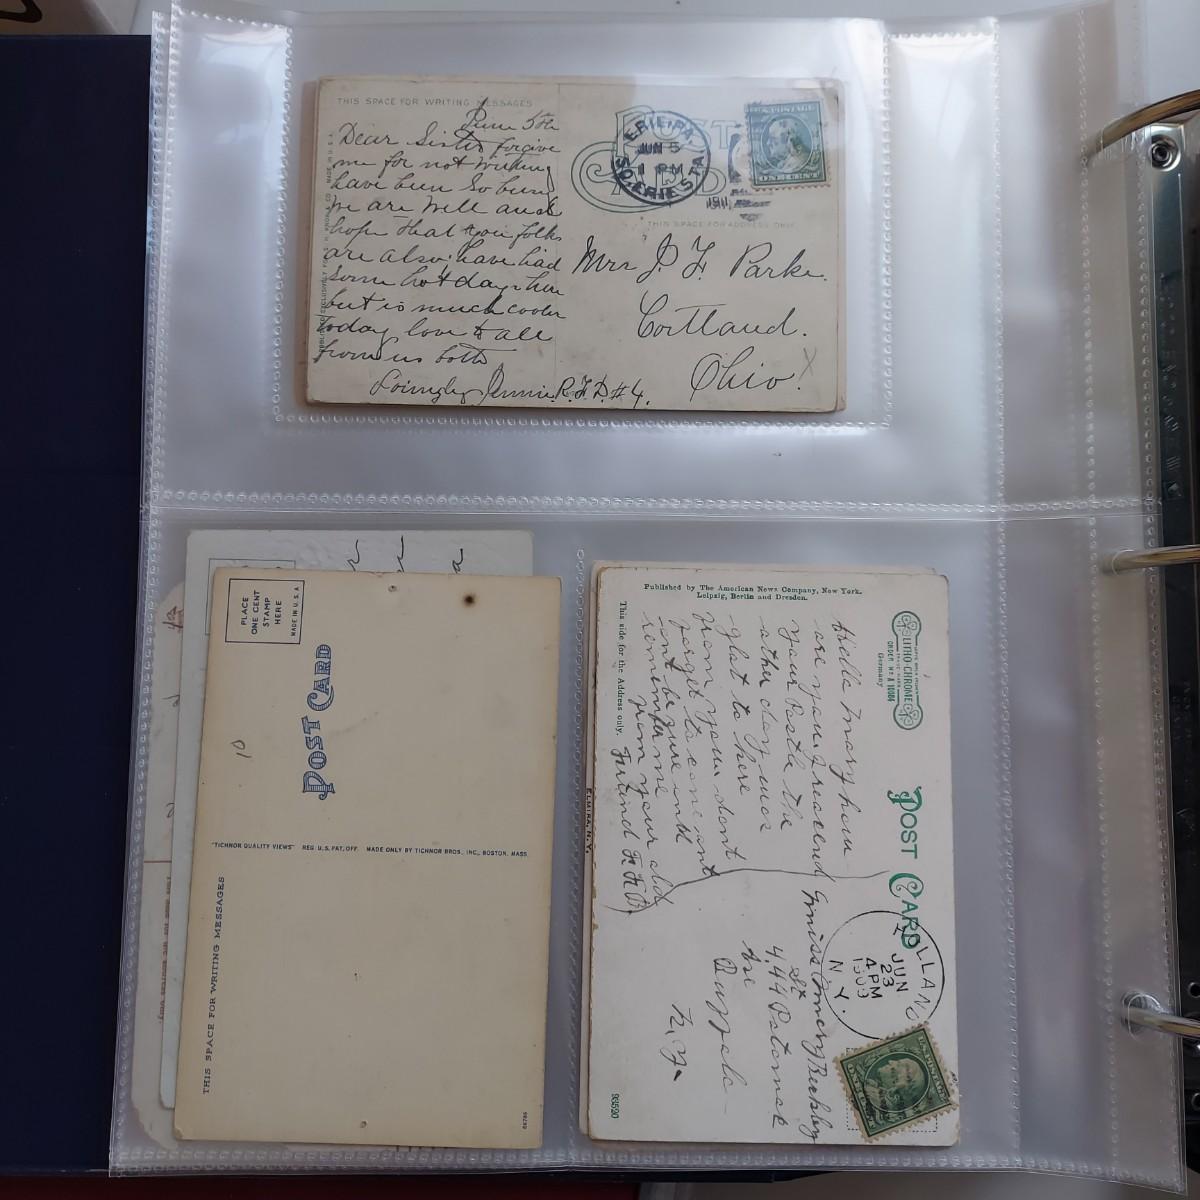 THIS SPACE FOR WRITING MESSAGES
June 5th
Dear Sister forgive
me for not writing
have been so busy
we are well and
hope that you folks
are also have had
some hot days here
but is much cooler
today love to all
from us both
Lovingly Jennie R.F.D. #4.
MADE IN U.S.A.
POST CARD
ERIE, PA
JUN 5
1 PM
SO. ERIE STA
1911
U.S. POSTAGE
ONE CENT
THIS SPACE FOR ADDRESS ONLY
Mrs J. F. Parke.
Cortland.
Ohio.
X
PLACE
ONE CENT
STAMP
HERE
MADE IN U.S.A.
POST CARD
"TICHNOR QUALITY VIEWS" REG. U.S. PAT. OFF. MADE ONLY BY TICHNOR BROS., INC., BOSTON, MASS.
THIS SPACE FOR WRITING MESSAGES
Published by The American News Company, New York.
Leipzig, Berlin and Dresden.
This side for the Address only.
LITHO-CHROME
ORDER No A 10084
Germany
POST CARD
Hella Mary how
are you. I reacend
your Postle the
other day was
glat to here
from you. dont
forget to come
and
remember me
from your old
Friend F. F. B.
HOLLAND
JUN
23
4 PM
N.Y.
U.S. POSTAGE
Emery Beebby
444
St
Ave
Buffalo
N.Y.
ELMIRA, N.Y.